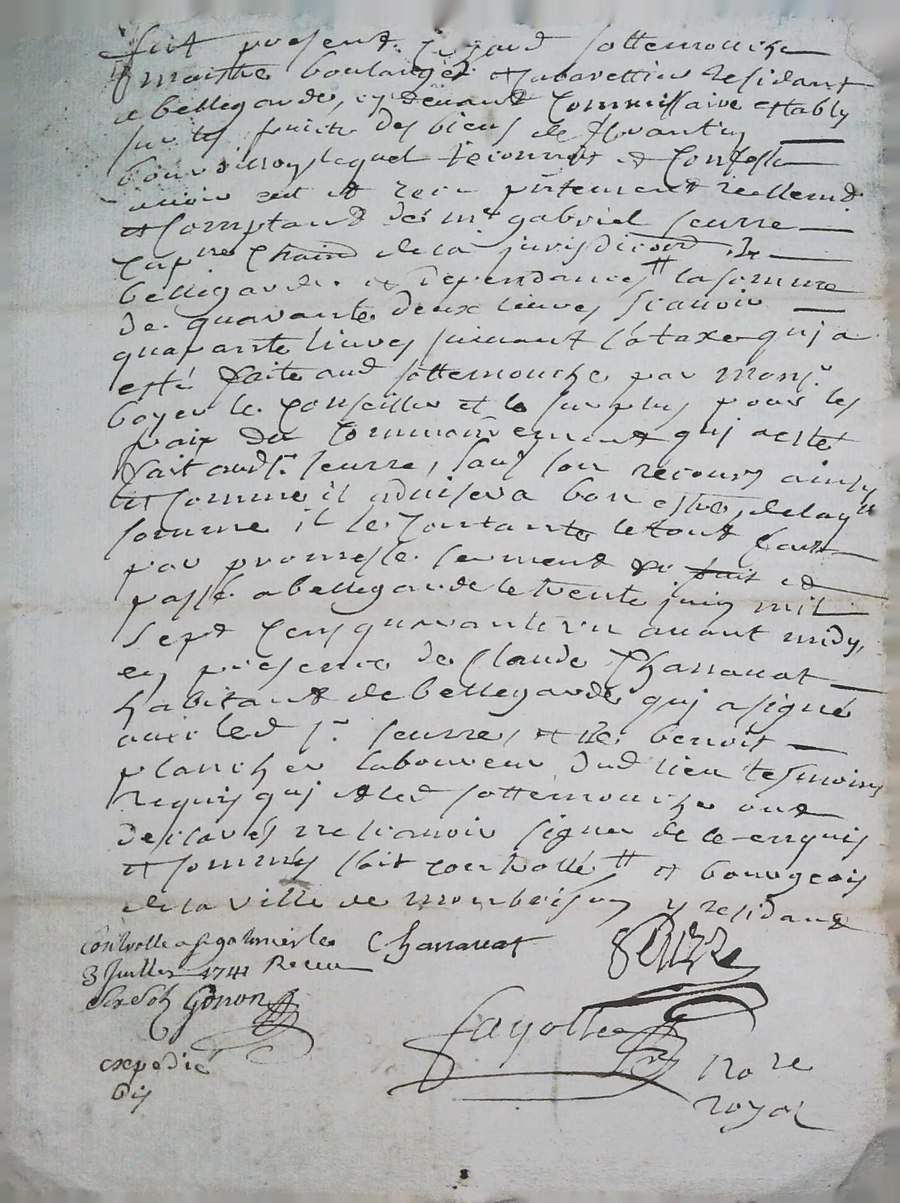 fut present Girard sottemouche
maistre boulanger et cabarettier residant
a bellegarde, cy devant Commissaire estably
sur les fruits des biens de
lequel reconnoit et Confesse
avoir eut et receu presentement reellement
et Comptant de mr gabriel seurre
de la jurisdiction de
bellegarde et dependances # la somme
de quarante deux livres scavoir
quarante livres suivant la taxe quj a
esté faite aud sottemouche par monsr
boyer le Conseiller et le surplus pour les
fraix du Commandement quj a esté
fait aud sr seurre, sauf son recours ainsy
et comme il advisera bon estre, de laqlle
somme il le Contante le tout
par promesse serment &c fait et
passé a bellegarde le trente juin mil
sept Cens quarante un avant midy,
en presence de Claude Charravat
habitant de bellegarde quj a signé
avec led sr seurre, et de benoit
plancher laboureur dud lieu tesmoins
requis quj et led sottemouche ont
desclarés ne scavoir signer de ce enquis
et sommés soit controllé # et bourgeois
de la ville de montbrison y residant
Controllé a st galmier le Charravat Seurre
3 Juillet 1741 Receu
six sols Gonon
fayolle
expedié nore
royal